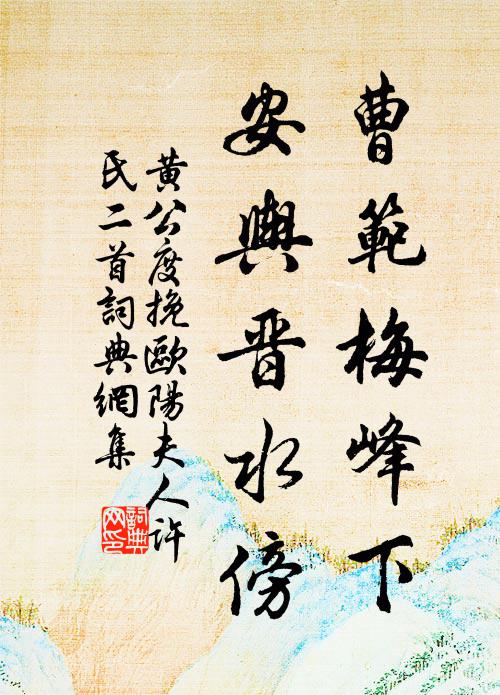 曹範梅峰下
安輿晋水傍
黃公度挽歐陽夫人許
氏二首詞典網集
詞典網印